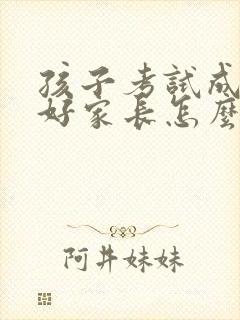 孩子考試成
好家長怎麼
阿井妹妹